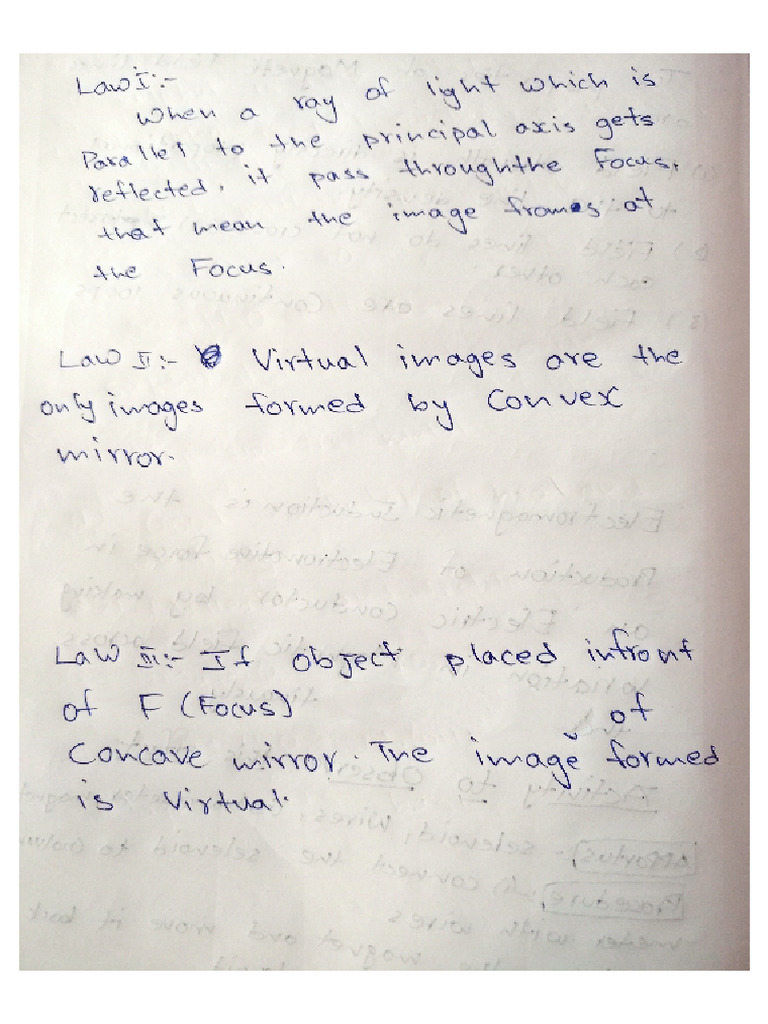 Law I:-
When a ray of light which is
Parallel to the principal axis gets
reflected, it pass throughthe Focus,
that mean the image frames at
the Focus.
Law II:- Virtual images are the
only images formed by Convex
mirror.
Law III:- If object placed infront
of F (Focus) of
Concave mirror. The image formed
is Virtual.